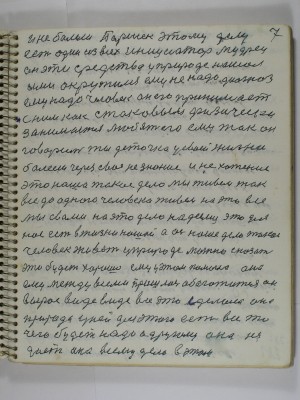 7
и не болеть Паршек этому делу
есть один из всех инициатор мудрец
он эти средства у природе нашол
ими окружился ему не надо диогноз
ему надо человек он его принимает
с ним как с таковым физически
занимается любя того ему так он
говорит ты деточка у своей жизни
болееш через свое не знание и не хотение
это наша такое дело мы живем так
все до одного человека живем на это все
мы свами на это дело надеемся это для
нас есть в жизни нашей а он наше дело такой
человек живет у природе можно сказать
это будет хорошо ему у этом помогло она
ему между всеми принуками обогатится он
вырос виде виде все это сделала она
природа у ней для этого есть все то
чего будет надо а другому она не
дает она всему дело в этом